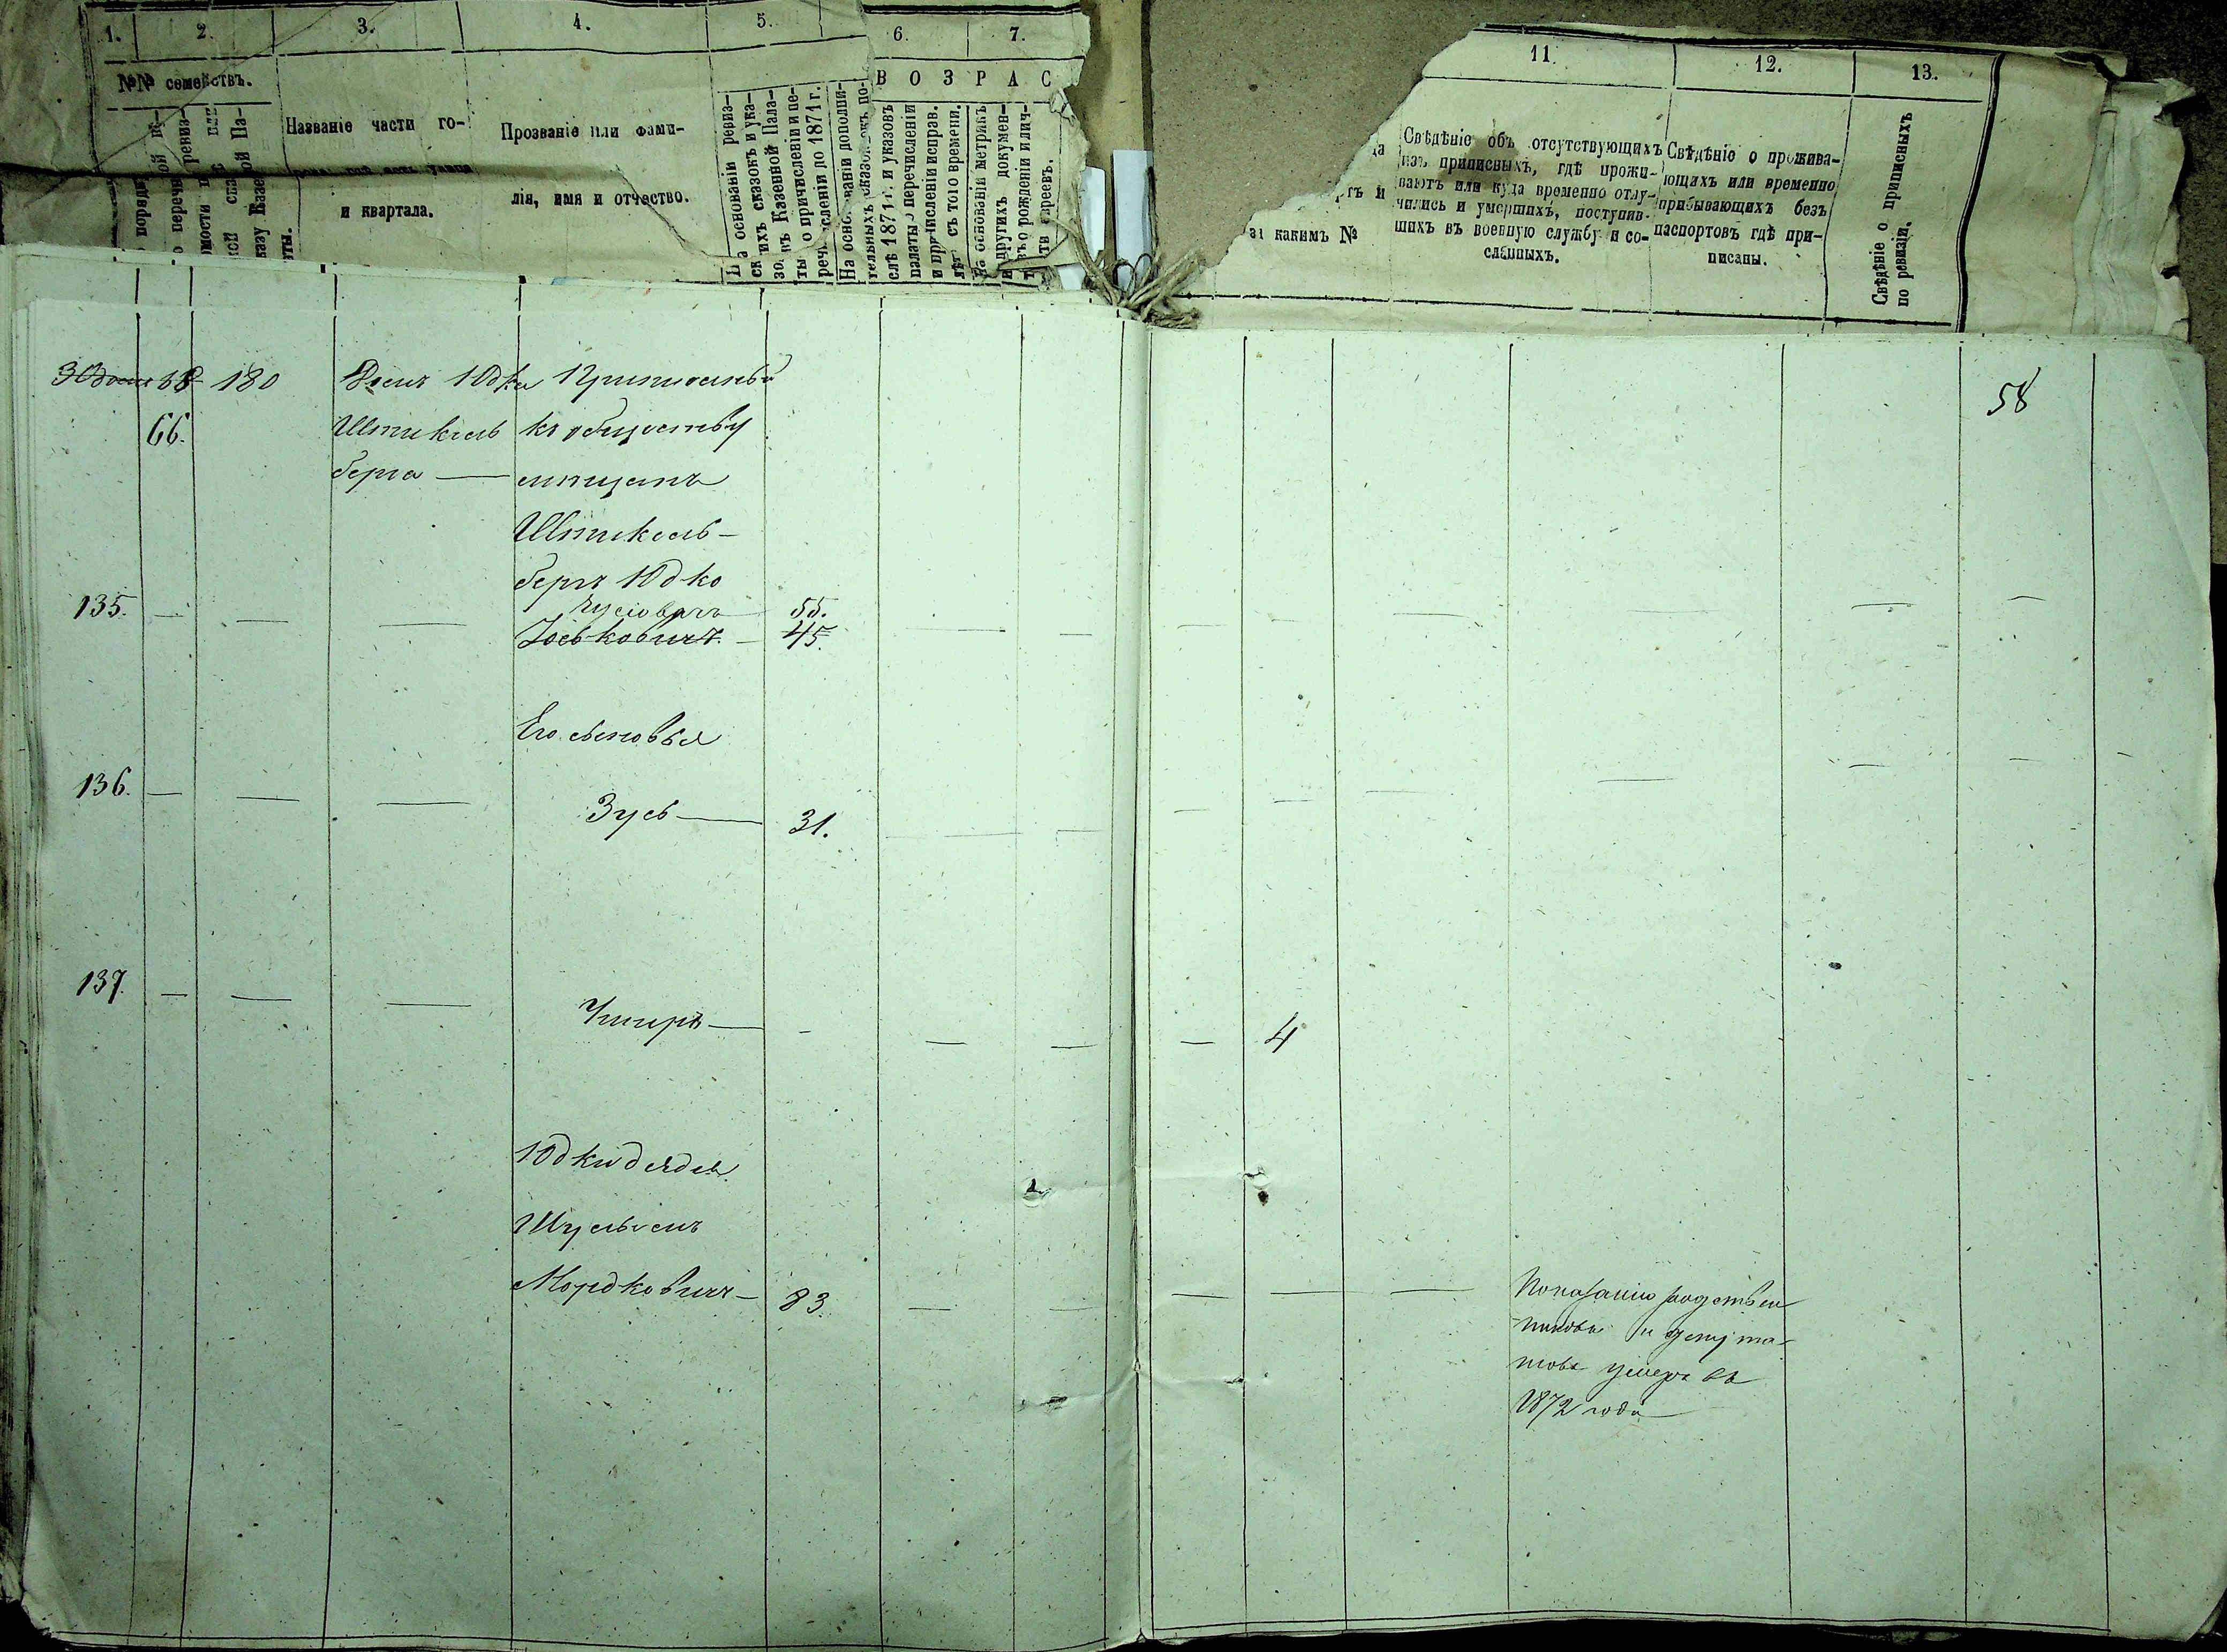 1. 2. 3. 4. 5. 6. 7. 11. 12. 13.
№№ семействъ.
Названіе части го-
и квартала.
Прозваніе или фами-
лія, имя и отчество.
а основаніи ревиз-
ихъ сказокъ и ука-
зовъ Казенной Пала-
ты о причисленіи и пе-
речисленіи до 1871 г.
На основаніи дополни-
тельныхъ сказокъ по-
слѣ 1871 г. и указовъ
палаты о перечисленіи
и причисленіи исправ.
съ того времени.
ВОЗРАС
На основаніи метрикъ
и другихъ докумен-
о рожденіи и лич-
евреевъ.
какимъ №
Свѣдѣніе объ отсутствующихъ
изъ приписныхъ, гдѣ прожи-
ваютъ или куда временно отлу-
чились и умершихъ, поступив-
шихъ въ военную службу и со-
сланныхъ.
Свѣдѣніе о прожива-
ющихъ или временно
прибывающихъ безъ
паспортовъ гдѣ при-
писаны.
Свѣдѣніе о приписныхъ
по ревизіи.
180 Домъ Юдки
66. Штикель
берга
къ обществу
мѣщанъ
58
Штикель-
бергъ Юдко
Зусіовичъ 55.
135. Іоськовичъ 45.
Его сыновья
136. Зусь 31.
137. 4
Юдки дядя
Шульимъ
Мордковичъ 83.
Показанію родствен
никовъ и депута-
товъ умеръ въ
1872 года